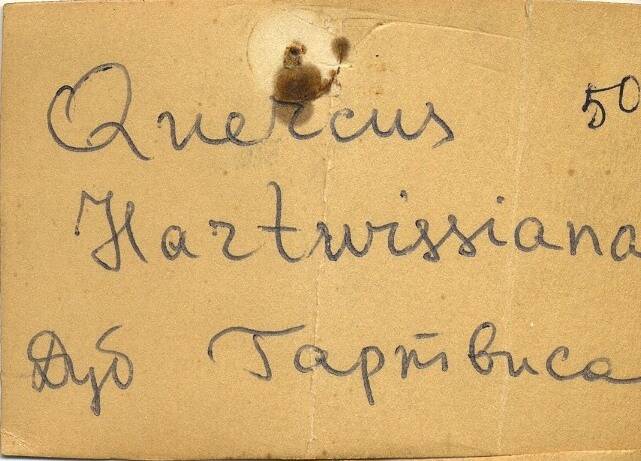 Quercus 50
Hartwissiana
Дуб Гартвиса